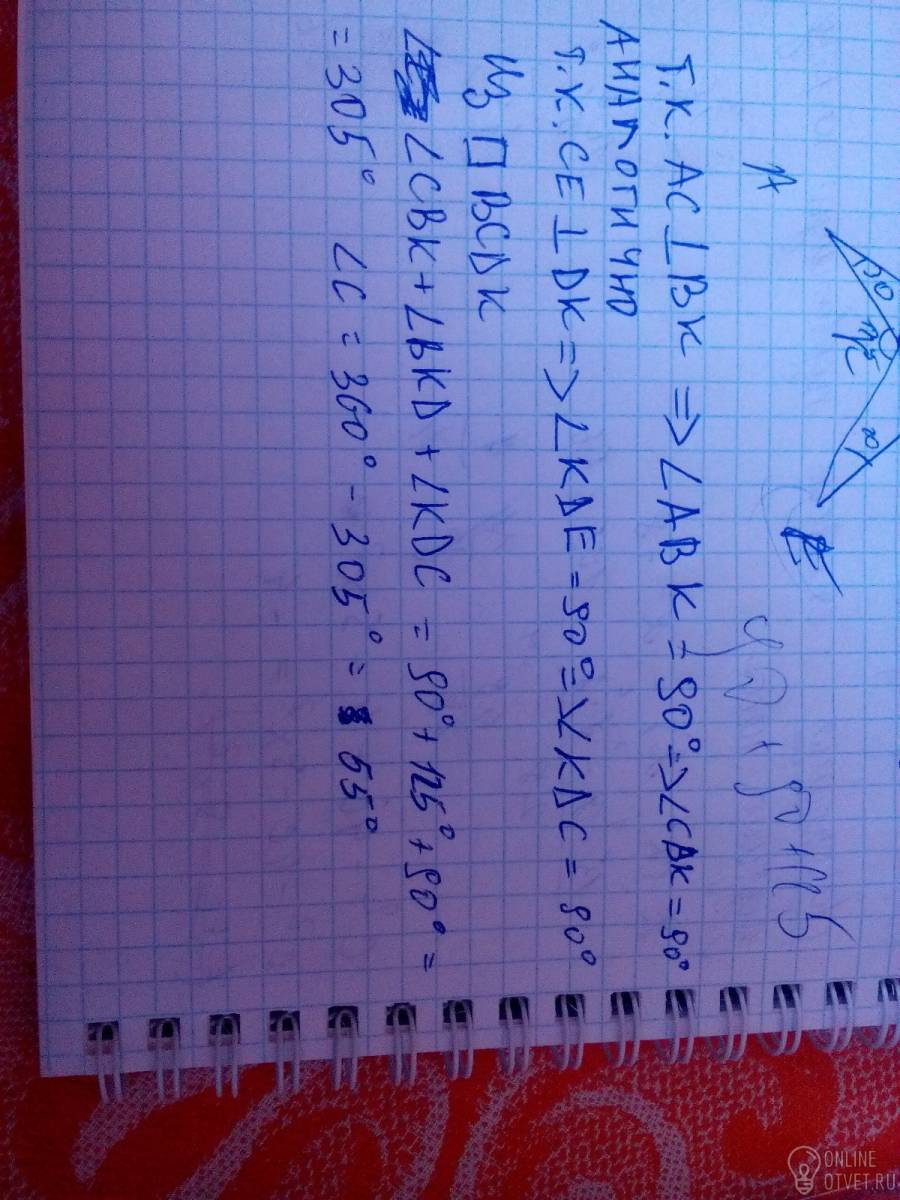 A
K
E
90 + 90 + 115
Т.К. AC ⊥ BK => ∠ABK = 90° => ∠CBK = 90°
АНАЛОГИЧНО
Т.К. CE ⊥ DK => ∠KDE = 90° => ∠KDC = 90°
Из □ BCDK
∠CBK + ∠BKD + ∠KDC = 90° + 125° + 90° =
= 305° ∠C = 360° - 305° = 55°
ONLINE
OTVET.RU